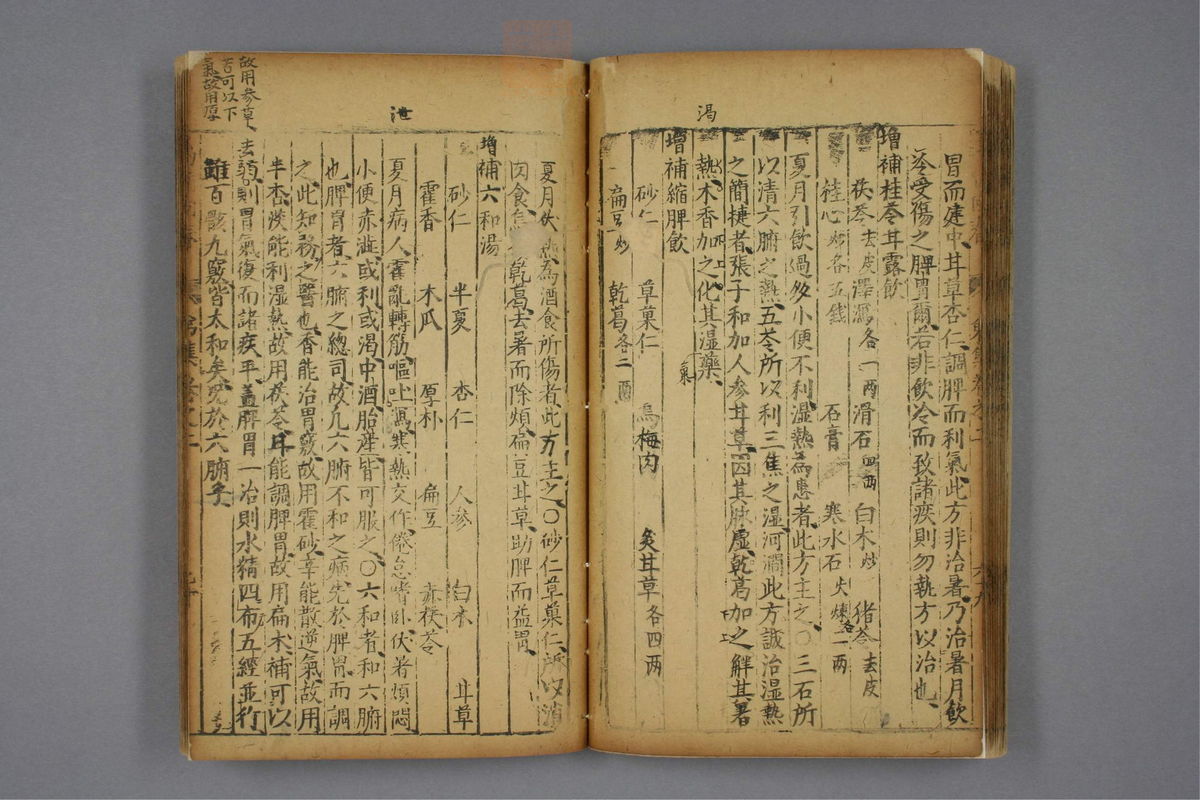 渴
冒而建中、甘草杏仁、調脾而利氣、此方非治暑、乃治暑月飲
冷受傷之脾胃爾、若非飲冷而致諸疾、則勿執方以治也、
增補桂苓甘露飲
茯苓去皮 澤瀉各一兩 滑石四兩 白朮炒 猪苓去皮
桂心炒各五錢 石膏 寒水石火煉各一兩
夏月引飲過多、小便不利、濕熱為患者、此方主之、〇三石所
以清六腑之熱、五苓所以利三焦之濕、河澗此方、誠治濕熱
之簡捷者、張子和加人參甘草、因其脉虛、乾葛加之、解其暑
熱、木香加之、化其濕氣、
增補縮脾飲
砂仁 草菓仁 烏梅肉 炙甘草各四兩
扁豆炒 乾葛各二兩
泄
夏月伏熱、為酒食所傷者、此方主之、〇砂仁草菓仁、所以消
肉食、烏梅乾葛、去暑而除煩、扁豆甘草、助脾而益胃、
增補六和湯
砂仁 半夏 杏仁 人參 白朮 甘草
霍香 木瓜 厚朴 扁豆 赤茯苓
夏月病人、霍亂轉筋、嘔吐瀉、寒熱交作、倦怠嗜臥、伏暑煩悶
小便赤澁、或利或渴、中酒胎產、皆可服之、〇六和者、和六腑
也、脾胃者、六腑之總司、故凡六腑不和之病、先於脾胃而調
之、此知務之醫也、香能治胃竅、故用霍砂、辛能散逆氣、故用
半杏、淡能利濕熱、故用茯苓、甘能調脾胃、故用扁朮、補可以
去弱、則胃氣復而諸疾平、蓋脾胃一治、則水精四布、五經並行
雖百骸九竅、皆太和矣、況於六腑乎
故用參草、
苦可以下
氣故用厚